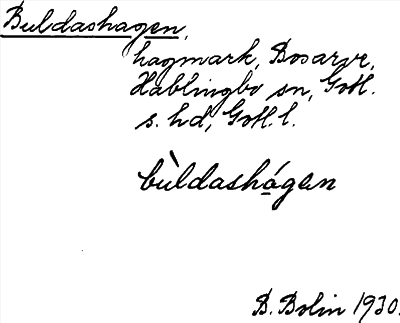 Buldashagen,
hagmark, Bosarve,
Hablingbo sn, Gotl.
s. hd, Gotl. l.
bùldashágan
B. Bolin 1930.